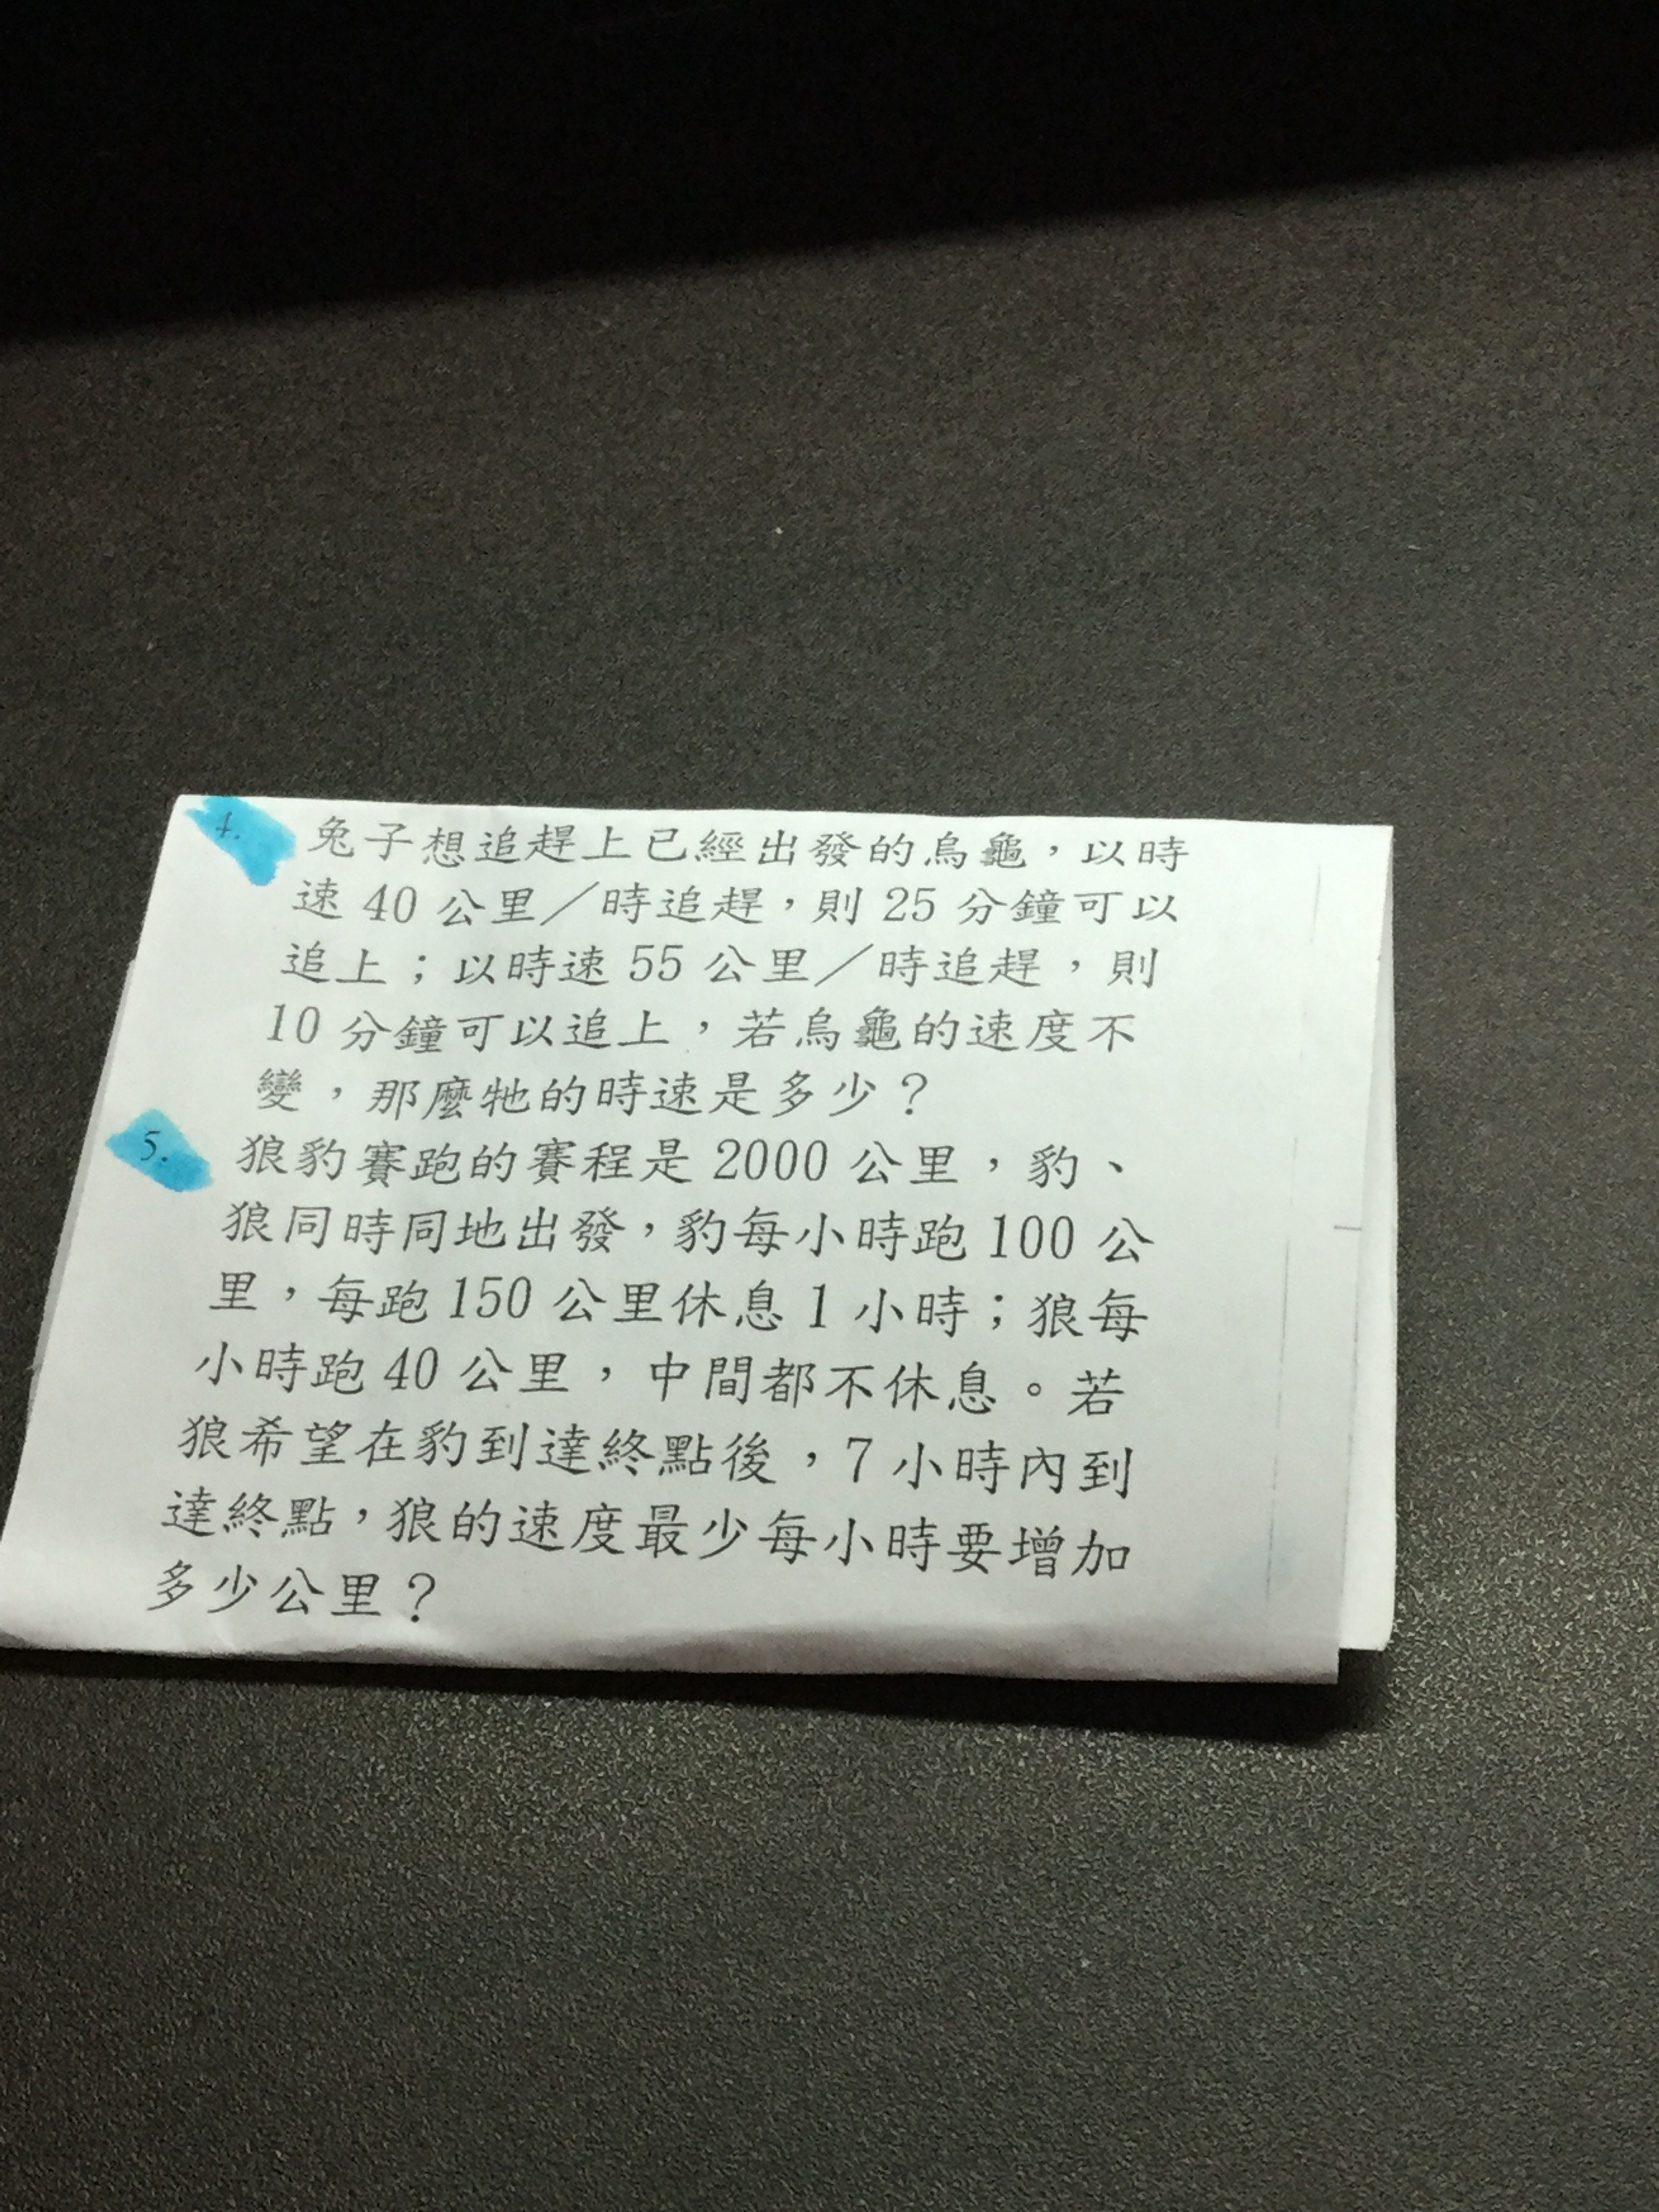 4. 兔子想追趕上已經出發的烏龜，以時
速 40 公里／時追趕，則 25 分鐘可以
追上；以時速 55 公里／時追趕，則
10 分鐘可以追上，若烏龜的速度不
變，那麼牠的時速是多少？
5. 狼豹賽跑的賽程是 2000 公里，豹、
狼同時同地出發，豹每小時跑 100 公
里，每跑 150 公里休息 1 小時；狼每
小時跑 40 公里，中間都不休息。若
狼希望在豹到達終點後，7 小時內到
達終點，狼的速度最少每小時要增加
多少公里？